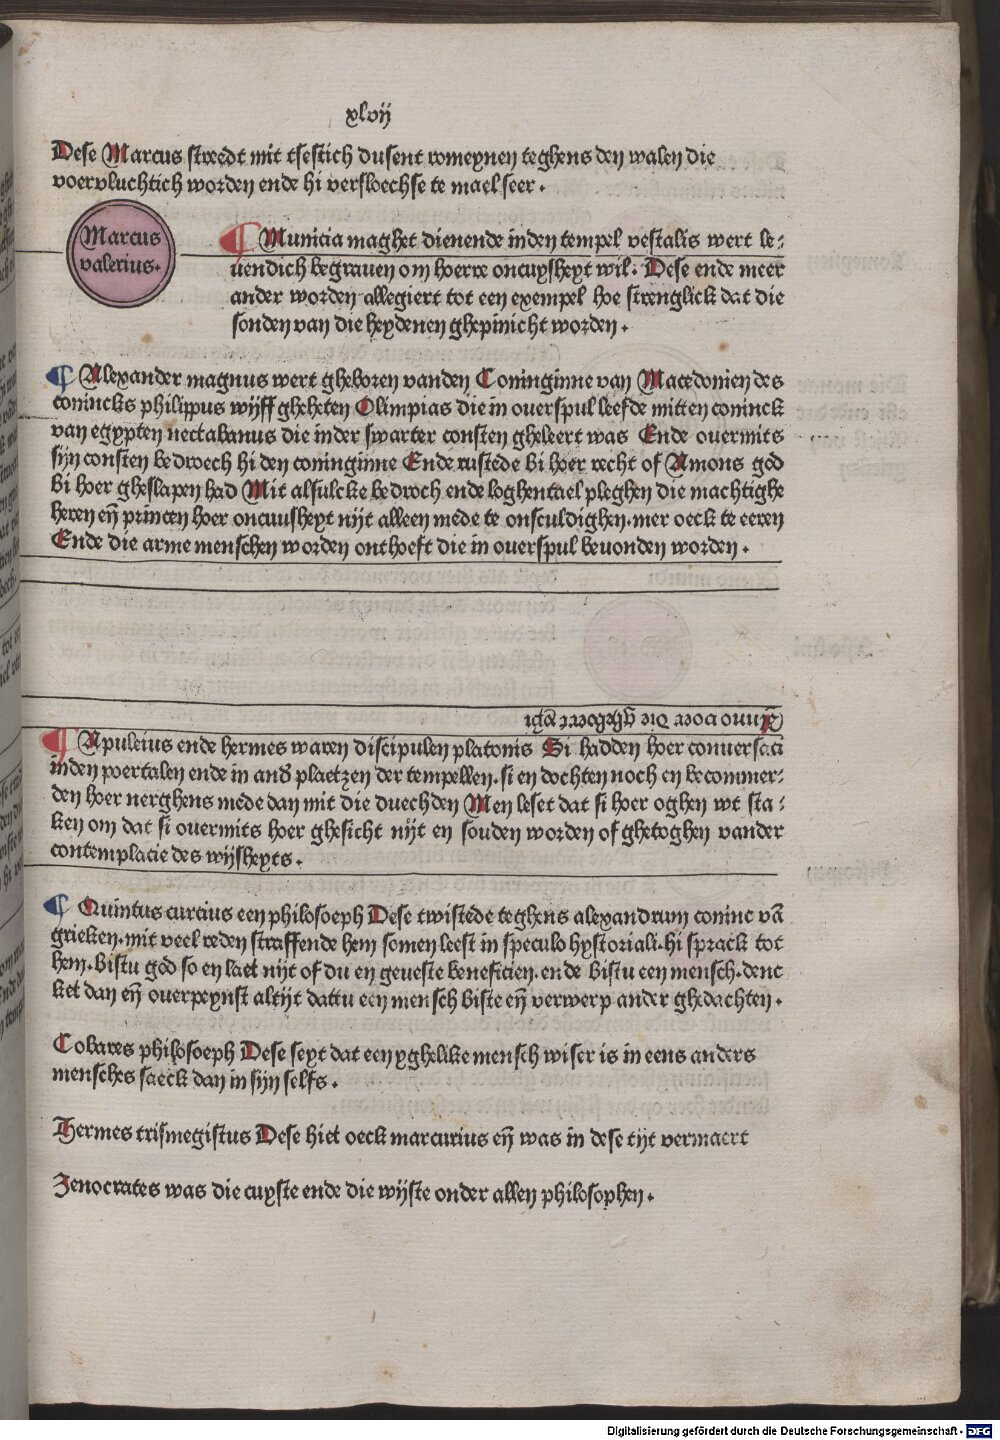 xlvij
Dese Marcus streedt mit tsestich dusent romeynen teghens den walen die
voervluchtich worden ende hi versloechse te mael seer.
Marcus
valerius.
¶ Municia maghet dienende inden tempel vestalis wert le-
uendich begrauen om hoerre oncuysheyt wil. Dese ende meer
ander worden allegiert tot een exempel hoe strenglick dat die
sonden van die heydenen ghepinicht worden.
¶ Alexander magnus wert gheboren vanden Coninginne van Macedonien des
conincks philippus wijff gheheten Olimpias die in ouerspul leefde mitten coninck
van egypten nectabanus die inder swarter consten gheleert was Ende ouermits
sijn consten bedroech hi den coninginne Ende rustede bi hoer recht of Amons god
bi hoer gheslapen had Mit alsulcke bedroch ende loghentael pleghen die machtighe
heren eñ princen hoer oncuusheyt nijt alleen mede te onsculdighen. mer oeck te eeren
Ende die arme menschen worden onthoeft die in ouerspul beuonden worden.
Anno voer die gheboert xp̄i
¶ Apuleius ende hermes waren discipulen platonis Si hadden hoer conuersaci
inden poertalen ende in and̄ plaetzen der tempellen. si en dochten noch en becommer-
den hoer nerghens mede dan mit die duechden Men leset dat si hoer oghen wt sta-
ken om dat si ouermits hoer ghesicht nijt en souden worden of ghetoghen vander
contemplacie des wijsheyts.
¶ Quintus curcius een philosoeph Dese twistede teghens alexandrum coninc vā
grieken. mit veel reden straffende hem somen leest in speculo hystoriali. hi sprack tot
hem. bistu god so en laet nijt of du en geueste beneficien. ende bistu een mensch. denc
ket dan eñ ouerpeynst altijt dattu een mensch biste eñ verwerp ander ghedachten.
Cobares philosoeph Dese seyt dat een yghelike mensch wiser is in eens anders
mensches saeck dan in sijn selfs.
Hermes trismegistus Dese hiet oeck marcurius eñ was in dese tijt vermaert
Zenocrates was die cuyste ende die wijste onder allen philosophen.
Digitalisierung gefördert durch die Deutsche Forschungsgemeinschaft - DFG